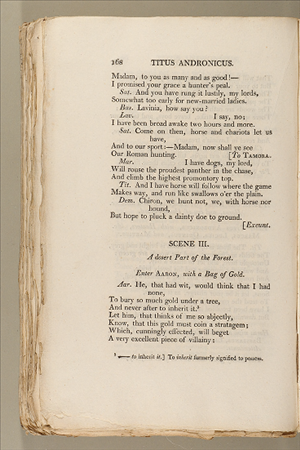 168 TITUS ANDRONICUS.
Madam, to you as many and as good!—
I promised your grace a hunter's peal.
Sat. And you have rung it lustily, my lords,
Somewhat too early for new-married ladies.
Bas. Lavinia, how say you?
Lav. I say, no;
I have been broad awake two hours and more.
Sat. Come on then, horse and chariots let us
have,
And to our sport:—Madam, now shall ye see
Our Roman hunting. [To TAMORA.
Mar. I have dogs, my lord,
Will rouse the proudest panther in the chase,
And climb the highest promontory top.
Tit. And I have horse will follow where the game
Makes way, and run like swallows o'er the plain.
Dem. Chiron, we hunt not, we, with horse nor
hound,
But hope to pluck a dainty doe to ground.
[Exeunt.
SCENE III.
A desert Part of the Forest.
Enter AARON, with a Bag of Gold.
Aar. He, that had wit, would think that I had
none,
To bury so much gold under a tree,
And never after to inherit it.³
Let him, that thinks of me so abjectly,
Know, that this gold must coin a stratagem;
Which, cunningly effected, will beget
A very excellent piece of villainy:
³ —— to inherit it.] To inherit formerly signified to possess.